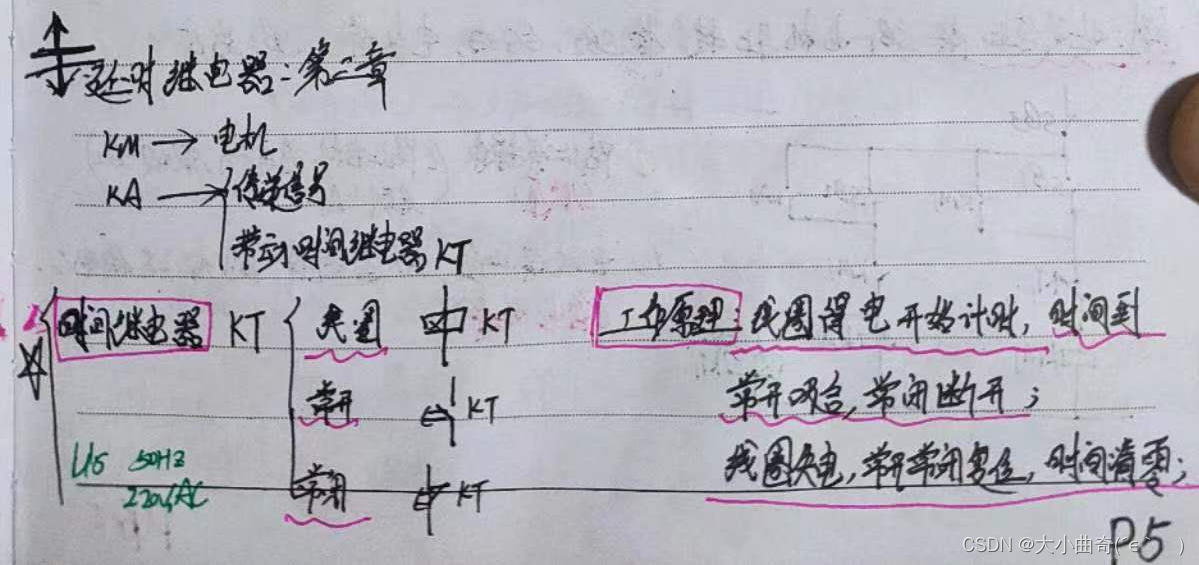 延时继电器:第二章
KM → 电机
KA → 传递信号
带动时间继电器 KT
时间继电器 KT 线圈 KT 工作原理:线圈得电开始计时,时间到
常开 KT 常开吸合,常闭断开;
U5 50Hz 线圈失电,常开常闭复位,时间清零;
220V,AC 常闭 KT
P5
CSDN @大小曲奇(